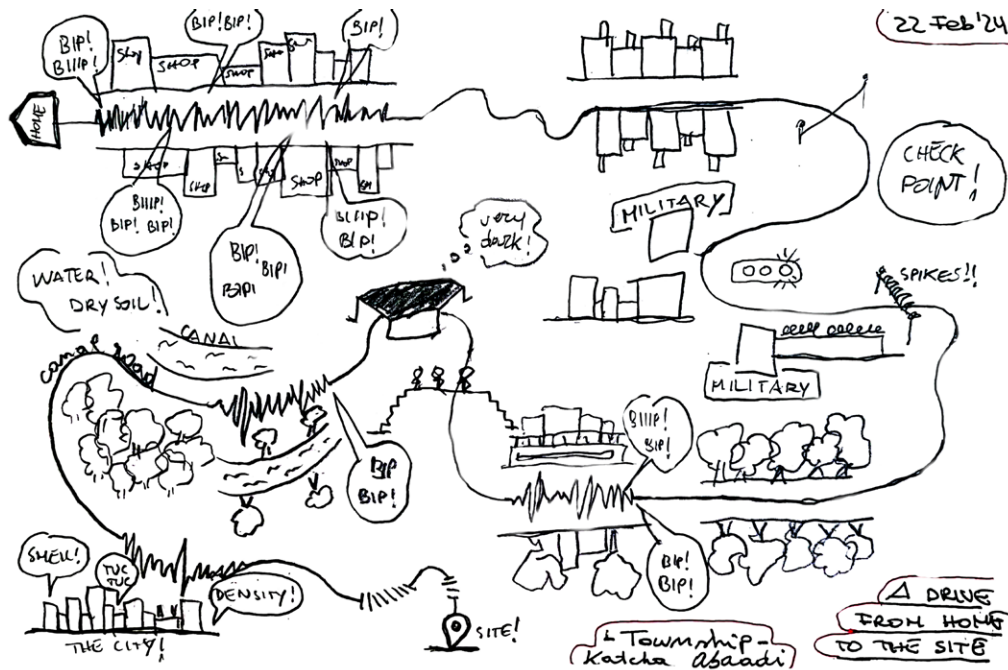 22 Feb '24
BIP!
BIIIP!
BIP! BIP!
BIP!
SHOP
SHOP
SHO
HOME
SHOP
SHOP
SHOP
SHOP
BIIIP!
BIP! BIP!
BIP!
BIP!
BIP!
BIIIP!
BIP!
CHECK
POINT!
MILITARY
very
dark!
WATER!
DRY SOIL!
CANAL
canal road
SPIKES!!
MILITARY
BIIIP!
BIP!
BIP
BIP!
BIP!
BIP!
SMELL!
TUC
TUC
DENSITY!
THE CITY!
SITE!
Township -
Katcha Abaadi
A DRIVE
FROM HOME
TO THE SITE